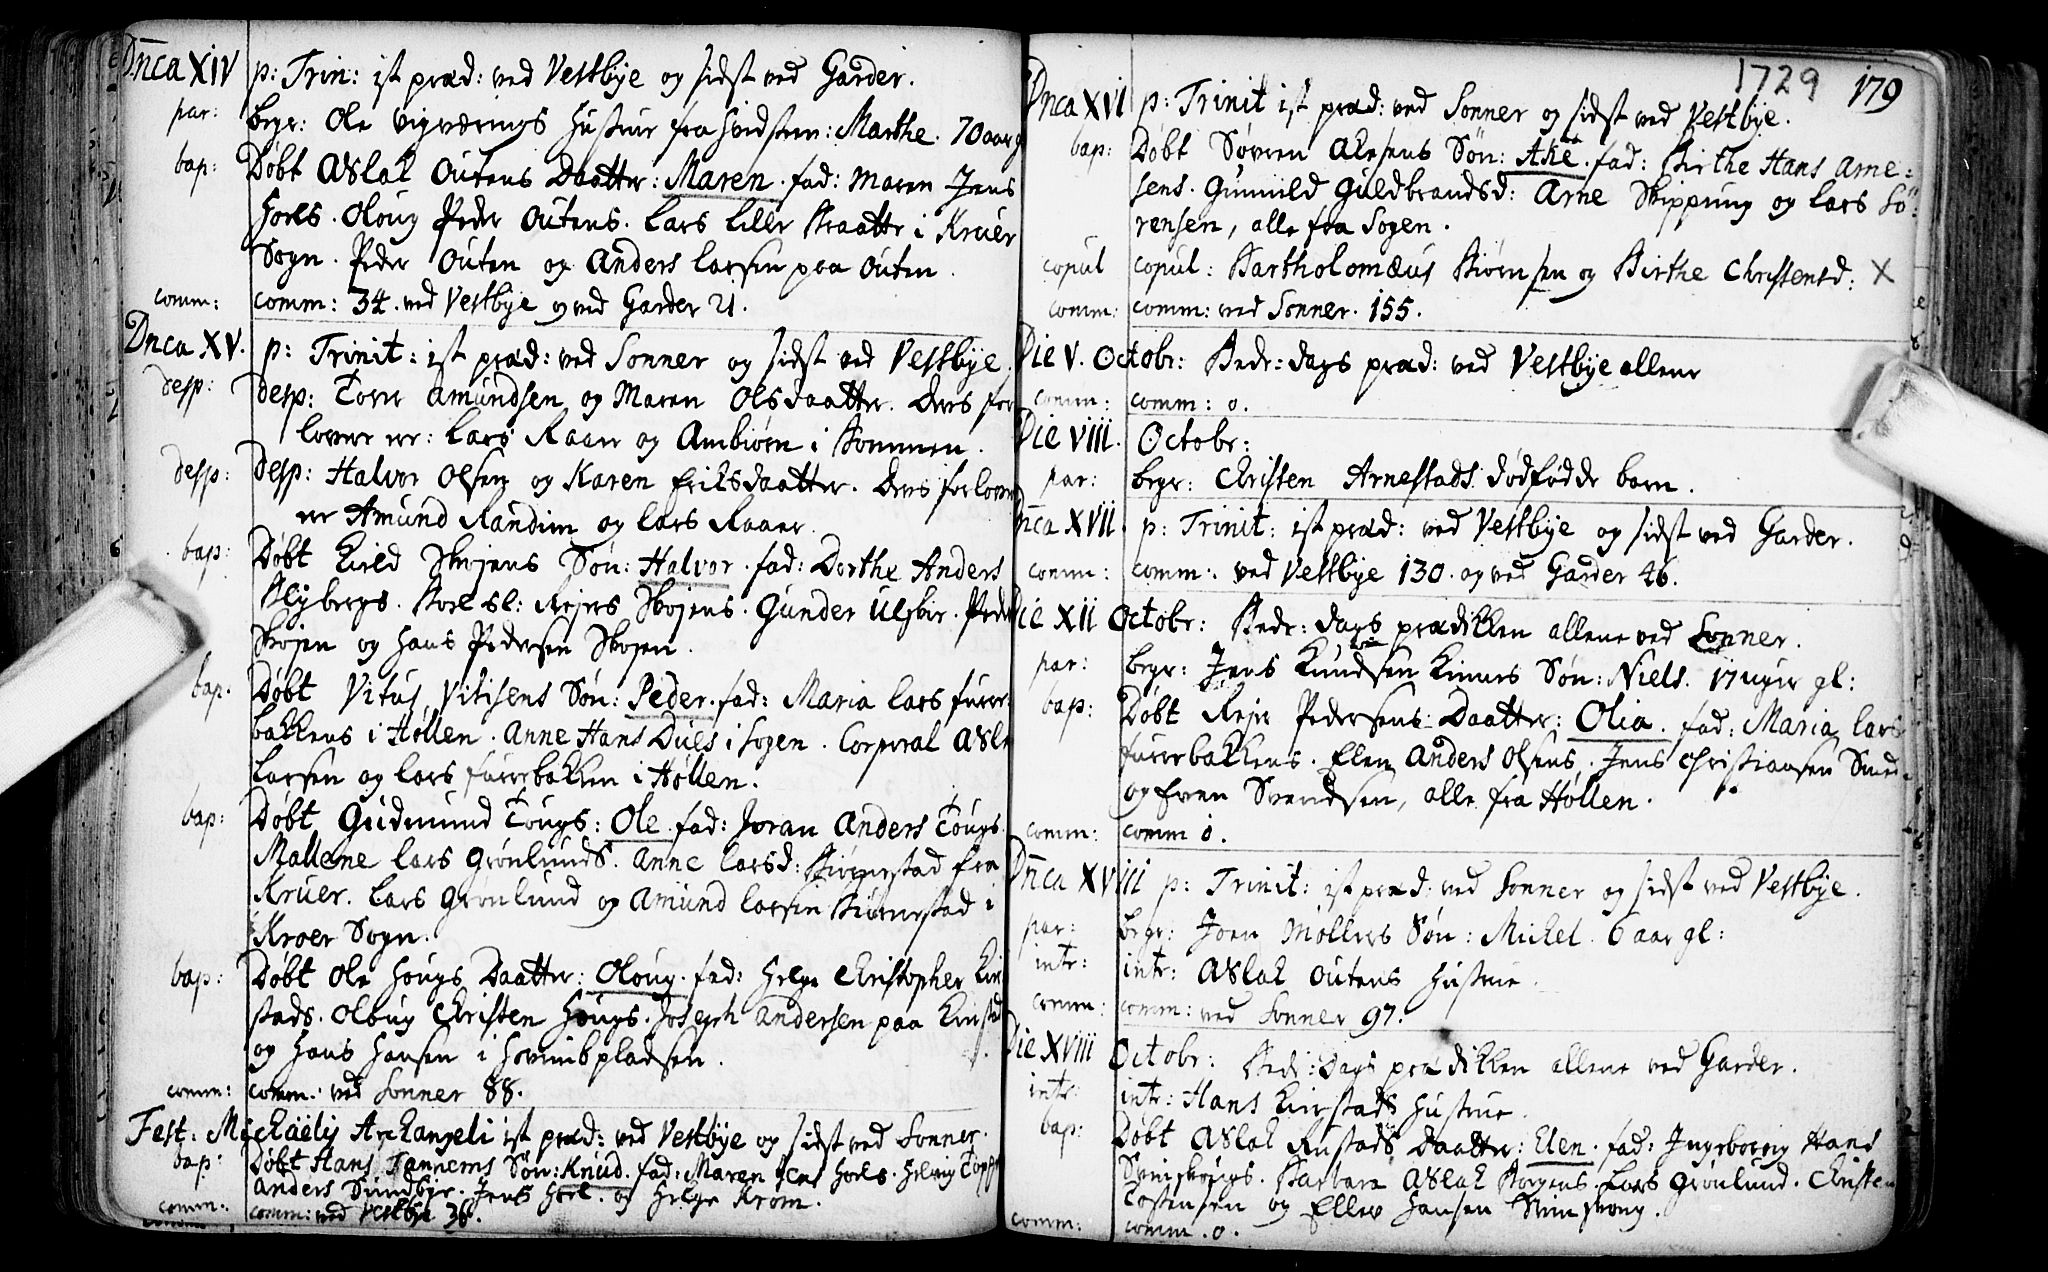 Dnca XIV p: Trin: ist præd: ved Vestbye og sidst ved Garder.
par: begr: Ole Vigværings Hustrue fra Hvidsteen: Marthe. 70 aar g
bap: Døbt Aslak Outens Daatter: Maren. fad: Maren Jens
Horls. Oloug Peder Outens. Lars Lille Kraatte i Kruer
Sogn. Peder Outen og Anders Larsen paa Outen.
comm: comm: 34. ved Vestbye og ved Garder 21.
Dnca XV. p: Trinit: ist præd: ved Sonner og sidst ved Vestbye.
desp: desp: Torer Amundsen og Maren Olsdaatter. Deres for
lovere er: Lars Raaer og Ambiørn i Sommen.
desp: desp: Halvor Olsen og Karen Eriksdaatter. Deres forlover
er Amund Randim og Lars Raaer.
bap: Døbt Kield Skojens Søn: Halvor. fad: Dorthe Anders
Klybergs. Korl sl: Rejers Skojens. Gunder Ulsbir. Peder
Skojen og Hans Pedersen Skojen.
bap. Døbt Vitus Vitisens Søn: Peder. fad: Maria Lars furre
bakkens i Hollen. Anne Hans Dues i Sogen. Corporal Asla
Larsen og Lars furrebakken i Høllen.
bap: Døbt Gudmund Tougs: Ole. fad: Joran Anders Tougs.
Mallene Lars Grønlunds. Anne Larsd: Kiørnestad fra
Kruer. Lars Grønlund og Amund Larsen Kiørnestad i
Kroer Sogn.
bap: Døbt Ole Hougs Daatter: Oloug. fad: Helge Christopher Kir
stads. Olbug Christen Hougs. Joseph Andersen paa Kirstad
og Hans Hansen i Hovimbpladsen.
comm: comm: ved Sonner 88.
Fest: Michaëlis Archangeli ist præd: ved Vestbye og sidst ved Sonner.
bap: Døbt Hans Tannems Søn: Knud. fad: Maren Jens Horls. Helvig Topp
Anders Sundbye. Jens Horl. og Helge Krom.
comm: comm: ved Vestbye 36.
1729 179
Dnca XVI p: Trinit ist præd: ved Sonner og sidst ved Vestbye.
bap: Døbt Søvren Alesens Søn: Ake. fad: Birthe Hans Arne:
sens. Gunnild Guldbrandsd: Arne Skippung og Lars Sö:
rensen, alle fra Sogen.
copul copul: Bartholomæus Biørnsen og Birthe Christensd: X
comm: comm: ved Sonner. 155.
Die V. Octobr: Bede: dags præd: ved Vestbye allene
comm: comm: 0.
Die VIII. Octobr:
par: begr: Christen Arnestads dødfødde barn.
Dnca XVII. p: Trinit: ist præd: ved Vestbye og sidst ved Garder.
comm: comm: ved Vestbye 130. og ved Garder 46.
Die XII Octobr: Bede: dags prædikken allene ved Sonner.
par: begr: Jens Knudsen Kinnes Søn: Niels. 17 uger gl:
bap: Døbt Rejer Pedersens Daatter: Olia. fad: Maria Lars
furrebakkens. Elen Anders Olsens. Jens Christiansen Smed
og Even Svendsen, alle fra Høllen.
comm: comm 0.
Dnca XVIII p: Trinit: ist præd: ved Sonner og sidst ved Vestbye.
par: begr: Joen Mollers Søn: Michel. 6 aar gl:
intr: intr: Aslak Outens Hustrue.
comm: comm: ved Sonner 97.
Die XVIII Octobr: Bede: Dags prædikken allene ved Garder.
intr: intr: Hans Kirstads Hustrue.
bap: Døbt Aslak Rustads Daatter: Elen. fad: Ingeborrig Hans
Barbara Aslak Borgens. Lars Grønlund. Christen
Tostensen og Ellev Hansen
comm: comm. 0.